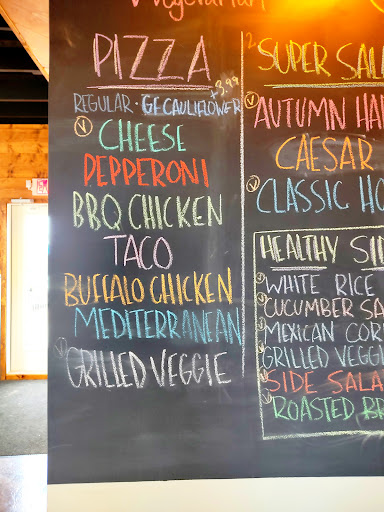 Vegetarian
PIZZA
+3.99
REGULAR · GF CAULIFLOWER
V CHEESE
PEPPERONI
BBQ CHICKEN
TACO
BUFFALO CHICKEN
MEDITERRANEAN
V GRILLED VEGGIE
SUPER SAL
V AUTUMN HA
CAESAR
V CLASSIC HO
HEALTHY SI
V WHITE RICE
V CUCUMBER SA
V MEXICAN COR
V GRILLED VEGGI
V SIDE SALA
V ROASTED BR